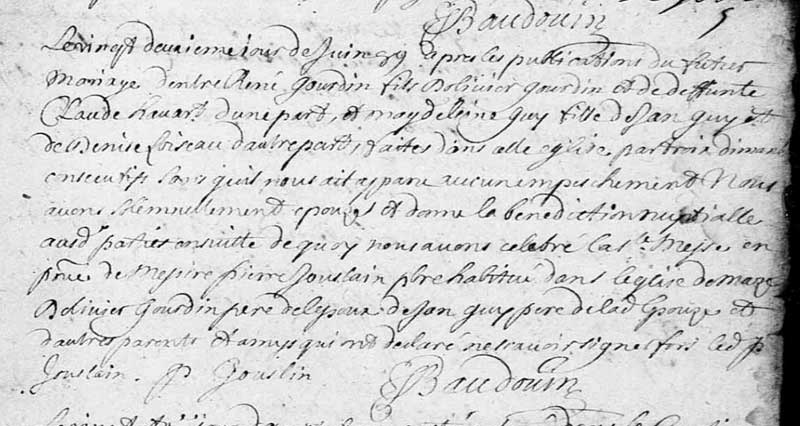 Baudouin
5
Le vingt deuxieme iour de Juin 89 apres les publications du futur
Mariage d'entre René Gourdin fils d'olivier Gourdin et de deffunte
Claude huart d'une part, et Magdeleine Guy fille de Jan Guy et
de Denise loiseau d'autre part, faites dans notre eglise par trois dimanc
consecutifs sans quil nous ait apparu aucun empeschement Nous
avons solemnellement epousez et donné la benediction nuptialle
ausd. parties ensuitte de quoy nous avons celebré la Ste Messe en
pnce de Messire Pierre Jouslain pbre habitué dans l'eglise de Mazé
d'olivier Gourdin pere de l'epoux de Jan Guy pere de lad. Epouze et
d'autres parents et amys qui ont declaré ne scavoir signer fors led. p
Jouslain. P Jouslin Baudouin